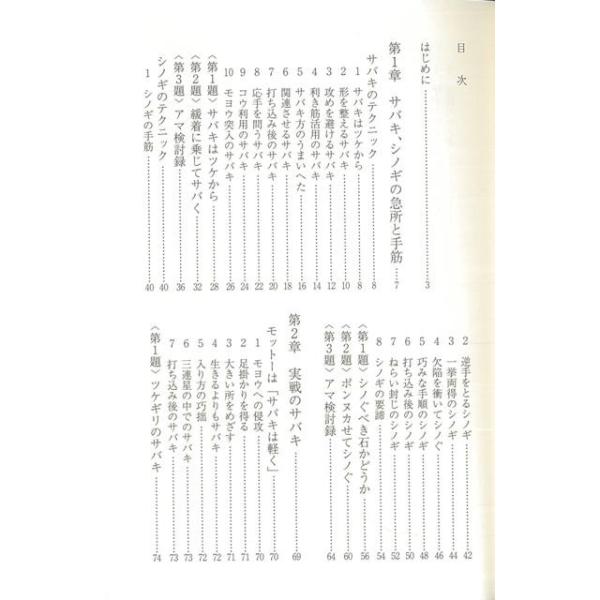 目次
はじめに……3
第1章 サバキ、シノギの急所と手筋……7
サバキのテクニック……8
1 サバキはツケから……8
2 形を整えるサバキ……10
3 攻めを避けるサバキ……12
4 利き筋活用のサバキ……14
5 サバキ方のうまいへた……16
6 関連させるサバキ……18
7 打ち込み後のサバキ……20
8 応手を問うサバキ……22
9 コウ利用のサバキ……24
10 モヨウ突入のサバキ……26
〈第1題〉サバキはツケから……28
〈第2題〉緩着に乗じてサバく……32
〈第3題〉アマ検討録……36
シノギのテクニック……40
1 シノギの手筋……40
2 逆手をとるシノギ……42
3 一挙両得のシノギ……44
4 欠陥を衝いてシノぐ……46
5 巧みな手順のシノギ……48
6 打ち込み後のシノギ……50
7 ねらい封じのシノギ……52
8 シノギの要諦……54
〈第1題〉シノぐべき石かどうか……56
〈第2題〉ポンヌカせてシノぐ……60
〈第3題〉アマ検討録……64
第2章 実戦のサバキ……69
モットーは「サバキは軽く」……70
1 モヨウへの侵攻……70
2 足掛かりを得る……71
3 大きい所をめざす……71
4 生きるよりもサバキ……72
5 入り方の巧拙……72
6 三連星の中でのサバキ……73
7 打ち込み後のサバキ……73
〈第1題〉ツケギリのサバキ……74